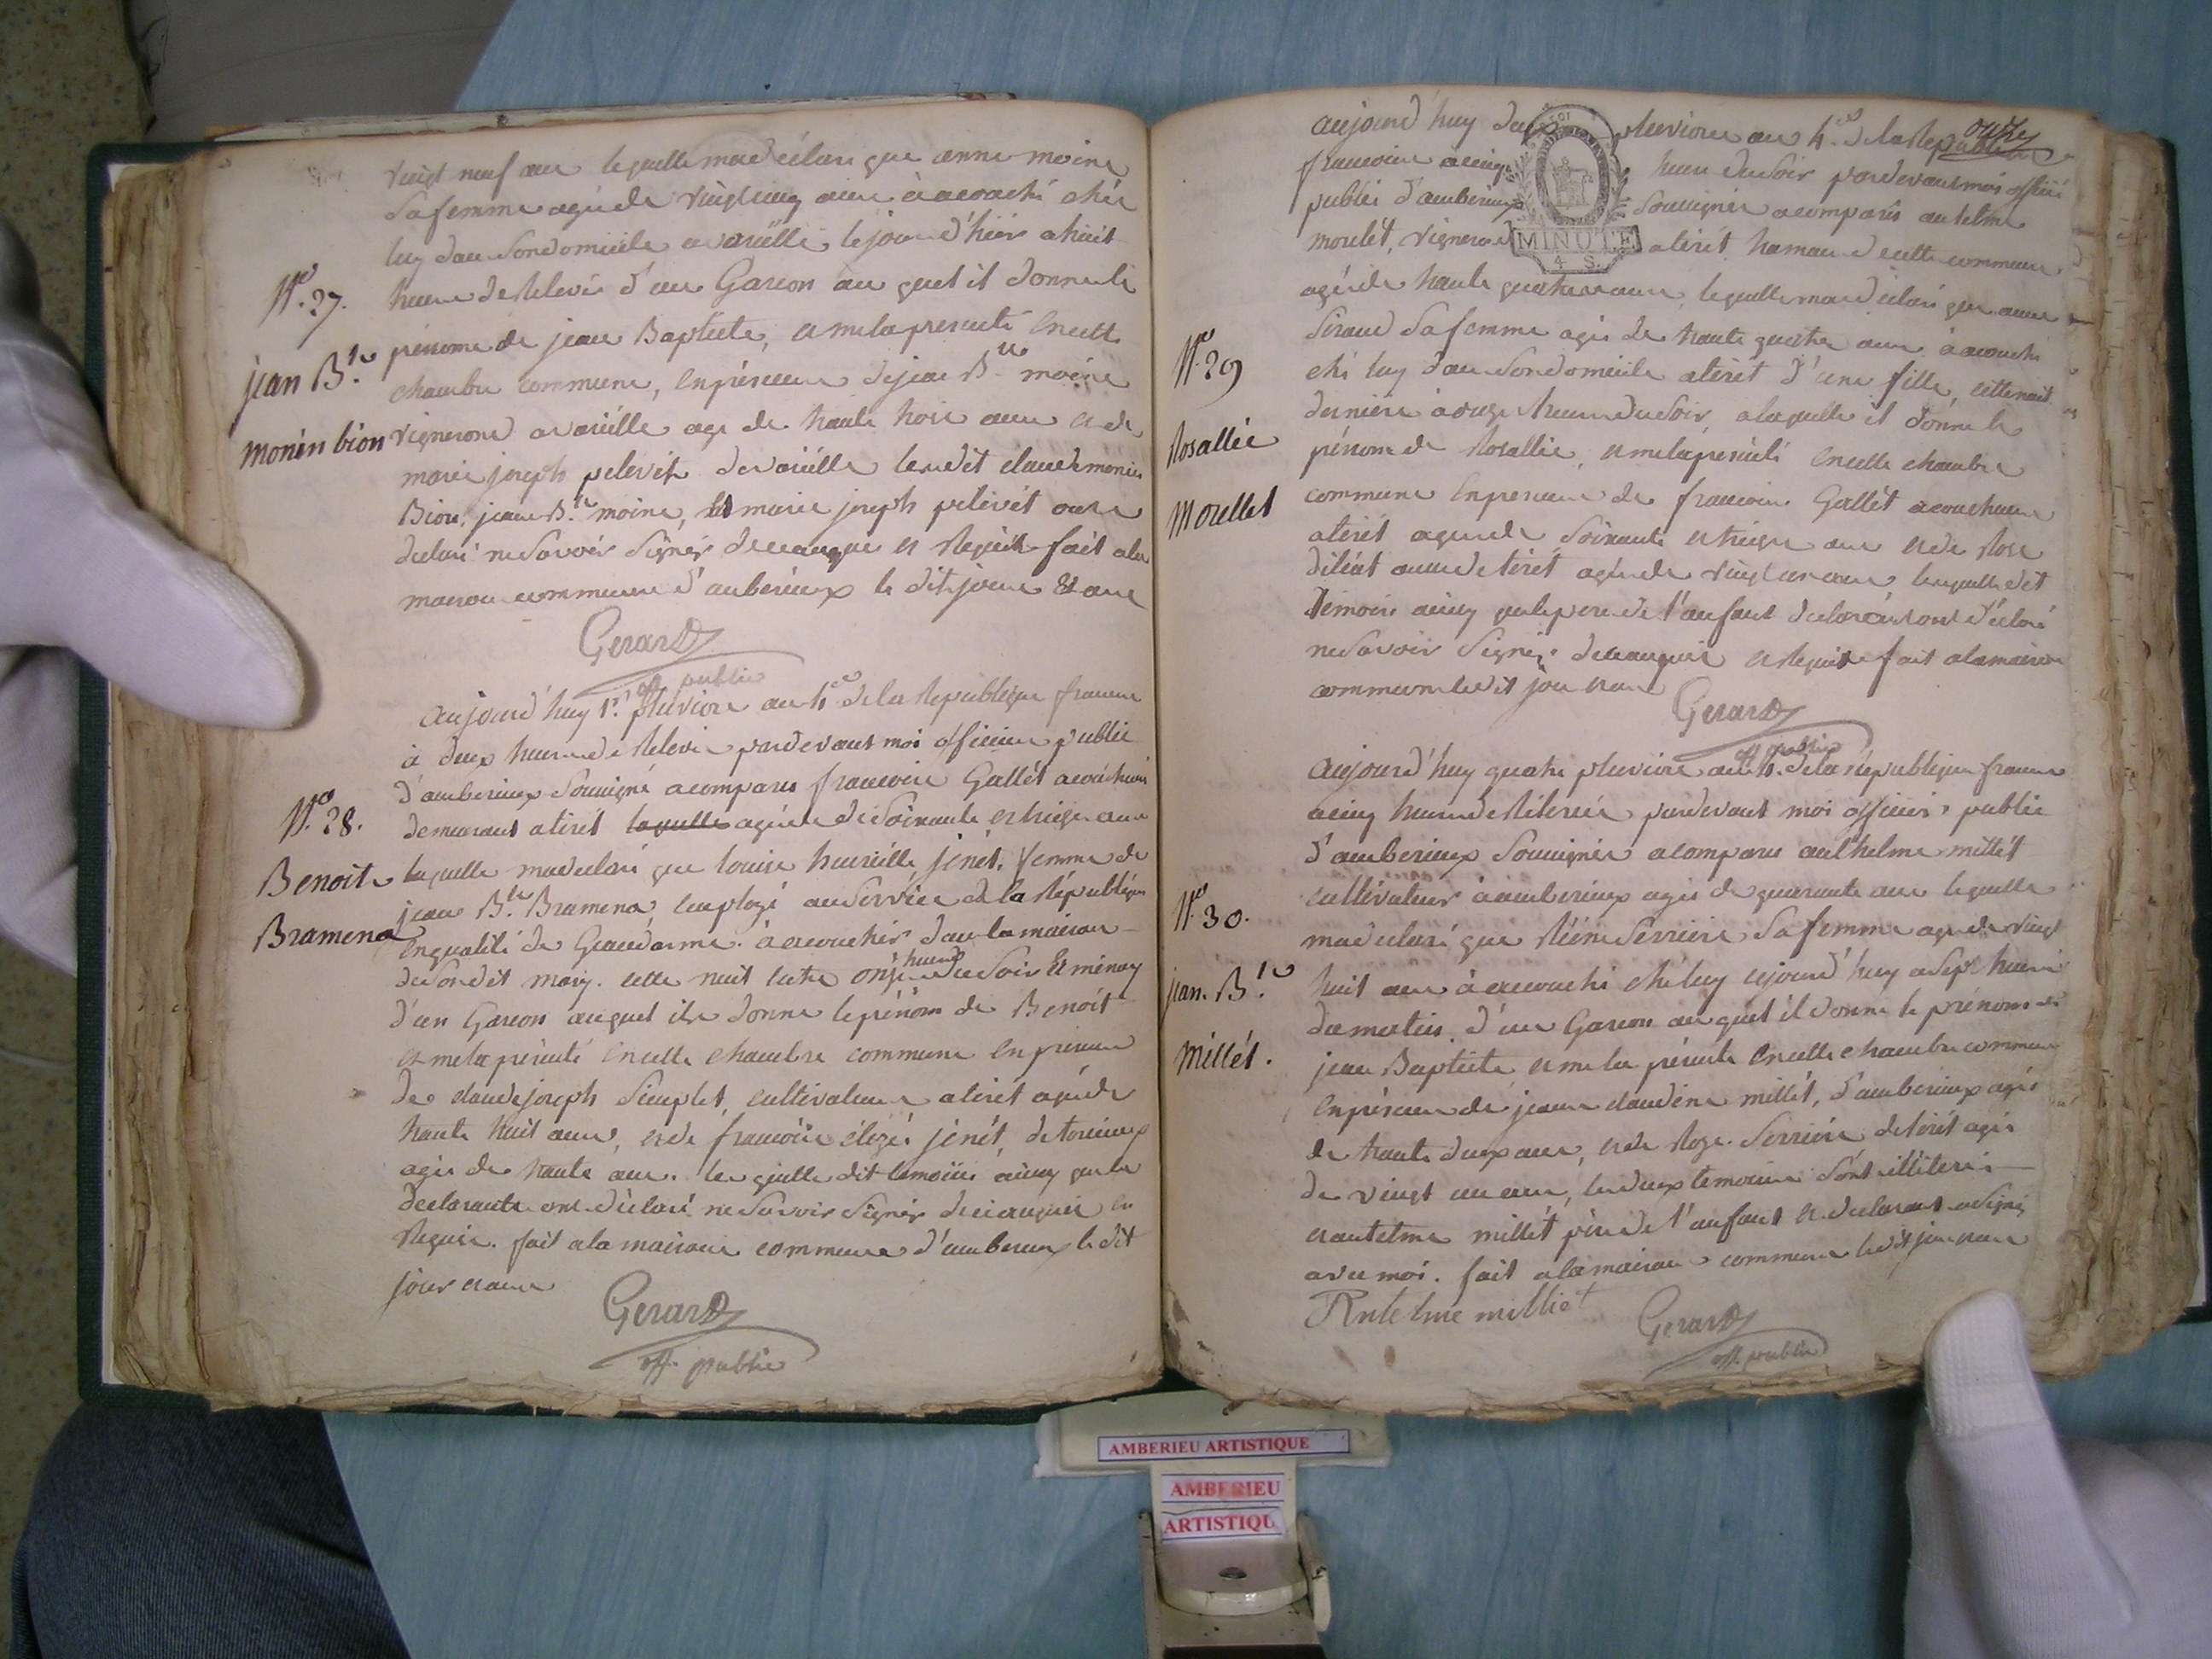 vingt neuf ans lequelle ma déclaré que anne moine
Sa femme agée de vingt cinq ans à acouché chés
luy dans Son domicile a vareille le jour d'hier a huit
heure de Relevée d'un Garcon au quel il donne le
N.o 27.
prénome de jean Baptiste, et me la presenté en cette
jean B.te
chambre commune, en présence de jean B.te moine
monin bion
vignerond a vareille age de trante trois ans et de
marie joseph pelevét de vareille lesdit claude monin
Bion, jean B.te moine, et marie joseph pelevét ont
declaré ne Savoir Signér de ce anquis et Requis fait a la
maison commune d'amberieux le dit jour et an
Gerard
off. public
Aujourd'huy 1.er pluviose an 4.e de la Republique francaise
à deux heure de Relevée pardevant moi officier public
d'amberieux Soussigné a comparu francoise Gallét acoucheuse
N.o 28.
demeurant a tirét agée de Soixante et treize ans
Benoit
laquelle ma declaré que louise jenét, femme de
jean B.te Bramena, employé au Service de la République
Bramena
en qualité de Geandarme à acouchée dans la maison
de Son dit mary cette nuit entre onze heures du Soir Et minuy
d'un Garcon auquel il donne le prénom de Benoit
et me la présenté en cette chambre commune en presence
de claude joseph cultivateur a tirét agé de
trante huit ans, et de francoise jenét, de torcieux
agée de trante ans. lesquelle dit temoins ainsy que la
declarante ont déclaré ne Savoir Signér de ce anquis et
Requis. fait a la maison commune d'amberieux le dit
jour et an
Gerard
off. public
onze
aujourd'huy deux pluviose an 4.e de la Republique
francoise a cinq heure du Soir pardevant moi officié
public d'amberieux Soussignér a comparu antelme
morelét, vignerond a tirét hamau de cette commune
MINUTE
4 S.
agée de trante quatre ans, lequelle ma déclaré que anne
Siraud Sa femme agée de trante quatre ans à acouché
N.o 29
ché luy dans Son domicile a tirét d'une fille, cette nuit
derniere à onze heure du Soir, a laquelle il donne le
Rosallie
prénom de Rosallie, et me la présenté en cette chambre
Morellet
commune en presence de francoise Gallét acoucheuse
a tirét agée de Soixante et treize ans et de Rose
de tirét agée de vingt un ans lesquelle dit
temoins ainsy que le pere de l'anfant declarant ont déclaré
ne Savoir Signér de ce anquis et Requis fait a la maison
commune le dit jour et an
Gerard
off. public
Aujourd'huy quatre pluviose an 4. de la république francaise
a cinq heure de Relevée pardevant moi officier public
d'amberieux Soussignér a comparu anthelme millét
cultivateur à amberieux agée de quarante ans lequelle
N.o 30.
ma declaré que Reine Serriere Sa femme agée de vingt
jean. B.te
huit ans à acouché ché luy aujourd'huy a Sept heure
du matin, d'un Garcon au quel il donne le prénom de
Millét.
jean Baptiste et me la présenté en cette chambre commune
en présence de jeanne claudine millét, d'amberieux agée
de trante deux ans, et de Roze Serriere de tirét agée
de vingt un ans, les deux temoins Sont illiterée
et antelme millét père de l'anfant et declarant a Signé
avec moi. fait a la maison commune le dit jour et an
Antelme milliet
Gerard
off. public
AMBERIEU ARTISTIQUE
AMBERIEU
ARTISTIQU